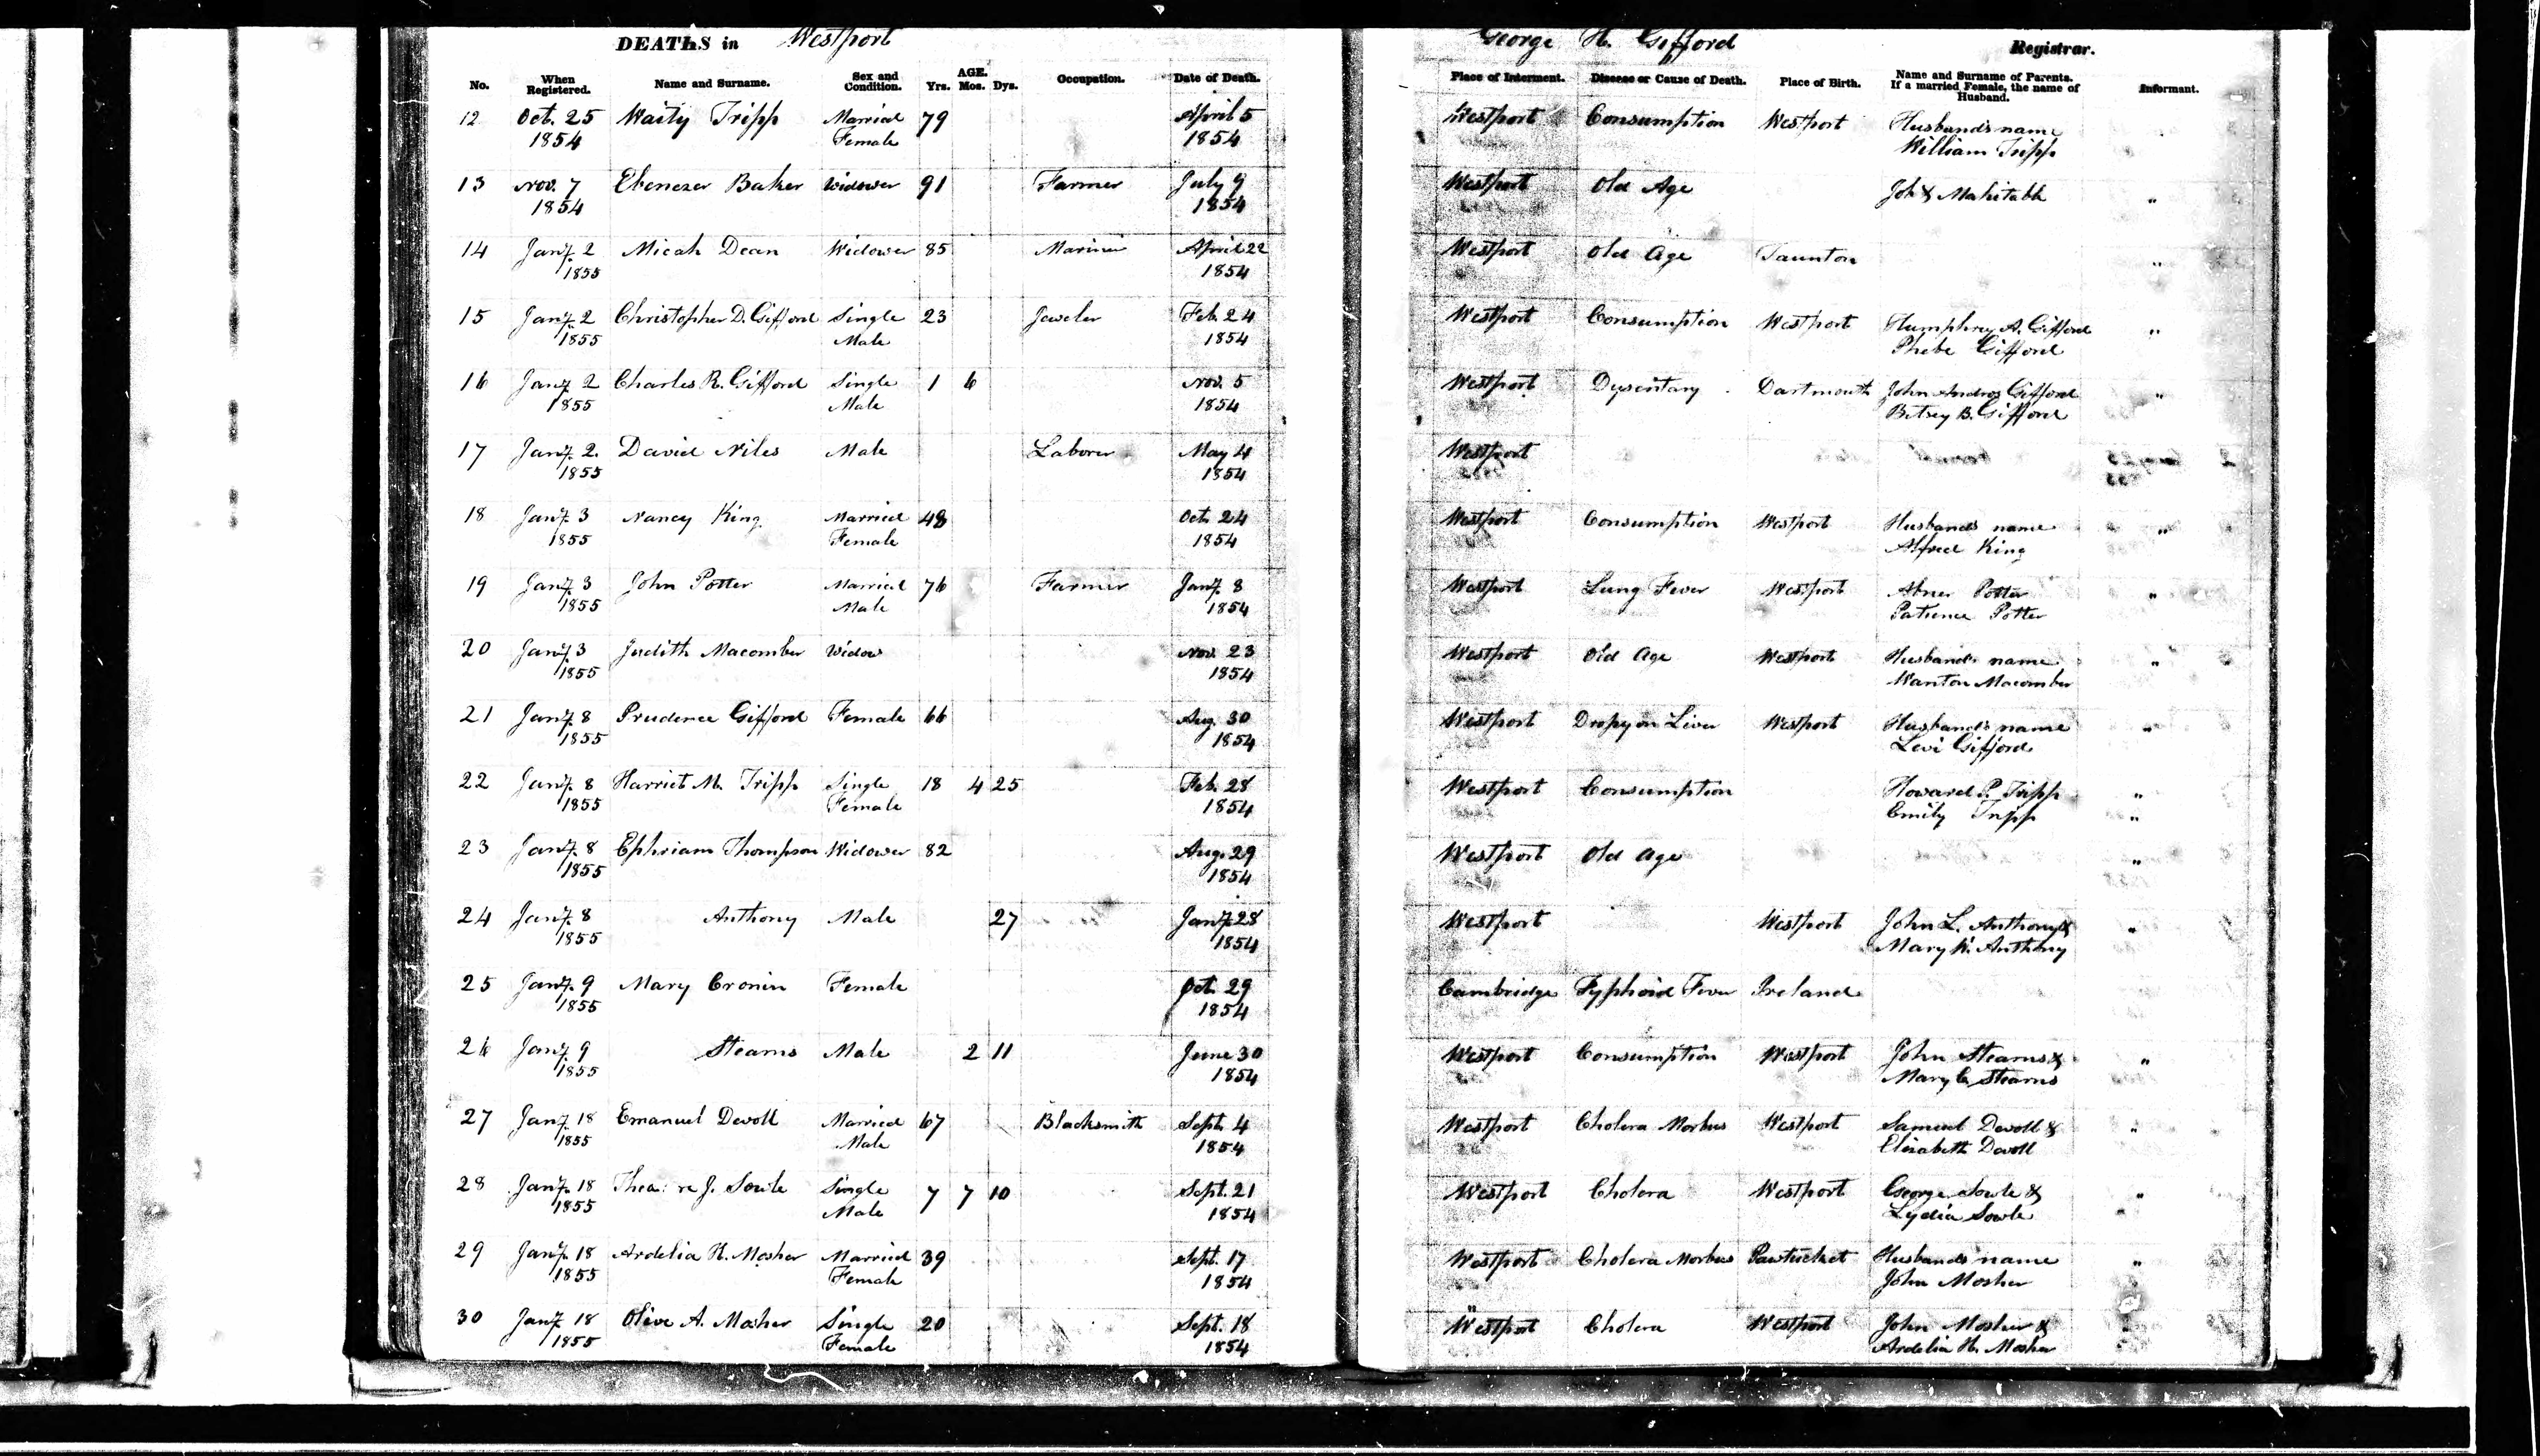 DEATHS in Westport
George H. Gifford Registrar.
No. When Registered. Name and Surname. Sex and Condition. AGE. Yrs. Mos. Dys. Occupation. Date of Death. Place of Interment. Disease or Cause of Death. Place of Birth. Name and Surname of Parents. If a married Female, the name of Husband. Informant.
12 Oct. 25 Waity Tripp Married 79 April 5 Westport Consumption Westport Husband's name
1854 Female 1854 William Tripp
13 Nov. 7 Ebenezer Baker Widower 91 Farmer July 9 Westport Old Age Job & Mahitable "
1854 1854
14 Jany. 2 Micah Dean Widower 85 Mariner April 22 Westport Old Age Taunton "
1855 1854
15 Jany. 2 Christopher D. Gifford Single 23 Jeweler Feb. 24 Westport Consumption Westport Humphrey A. Gifford "
1855 Male 1854 Phebe Gifford
16 Jany. 2 Charles R. Gifford Single 1 6 Nov. 5 Westport Dysentary Dartmouth John Andros Gifford "
1855 Male 1854 Betsey B. Gifford
17 Jany. 2. David Niles Male Laborer May 4 Westport
1855 1854
18 Jany. 3 Nancy King Married 48 Oct. 24 Westport Consumption Westport Husband's name "
1855 Female 1854 Alfred King
19 Jany. 3 John Potter Married 76 Farmer Jany. 8 Westport Lung Fever Westport Abner Potter "
1855 Male 1854 Patience Potter
20 Jany. 3 Judith Macomber Widow Nov. 23 Westport Old Age Westport Husband's name "
1855 1854 Wanton Macomber
21 Jany. 8 Prudence Gifford Female 66 Aug. 30 Westport Dropy on Liver Westport Husband's name "
1855 1854 Levi Gifford
22 Jany. 8 Harriet M. Tripp Single 18 4 25 Feb. 28 Westport Consumption Howard P. Tripp "
1855 Female 1854 Emily Tripp "
23 Jany. 8 Ephriam Thompson Widower 82 Aug. 29 Westport Old Age "
1855 1854
24 Jany. 8 Anthony Male 27 Jany. 28 Westport Westport John L. Anthony & "
1855 1854 Mary W. Anthony
25 Jany. 9 Mary Cronin Female Oct. 29 Cambridge Typhoid Fever Ireland
1855 1854
26 Jany. 9 Stearns Male 2 11 June 30 Westport Consumption Westport John Stearns & "
1855 1854 Mary C. Stearns
27 Jany. 18 Emanuel Devoll Married 67 Blacksmith Sept. 4 Westport Cholera Morbus Westport Samuel Devoll & "
1855 Male 1854 Elizabeth Devoll
28 Jany. 18 J. Sowle Single 7 7 10 Sept. 21 Westport Cholera Westport George Sowle & "
1855 Male 1854 Lydia Sowle "
29 Jany. 18 Ardelia H. Mosher Married 39 Sept. 17 Westport Cholera Morbus Pawtucket Husband's name "
1855 Female 1854 John Mosher
30 Jany. 18 Olive A. Mosher Single 20 Sept. 18 Westport Cholera Westport John Mosher &
1855 Female 1854 Ardelia H. Mosher